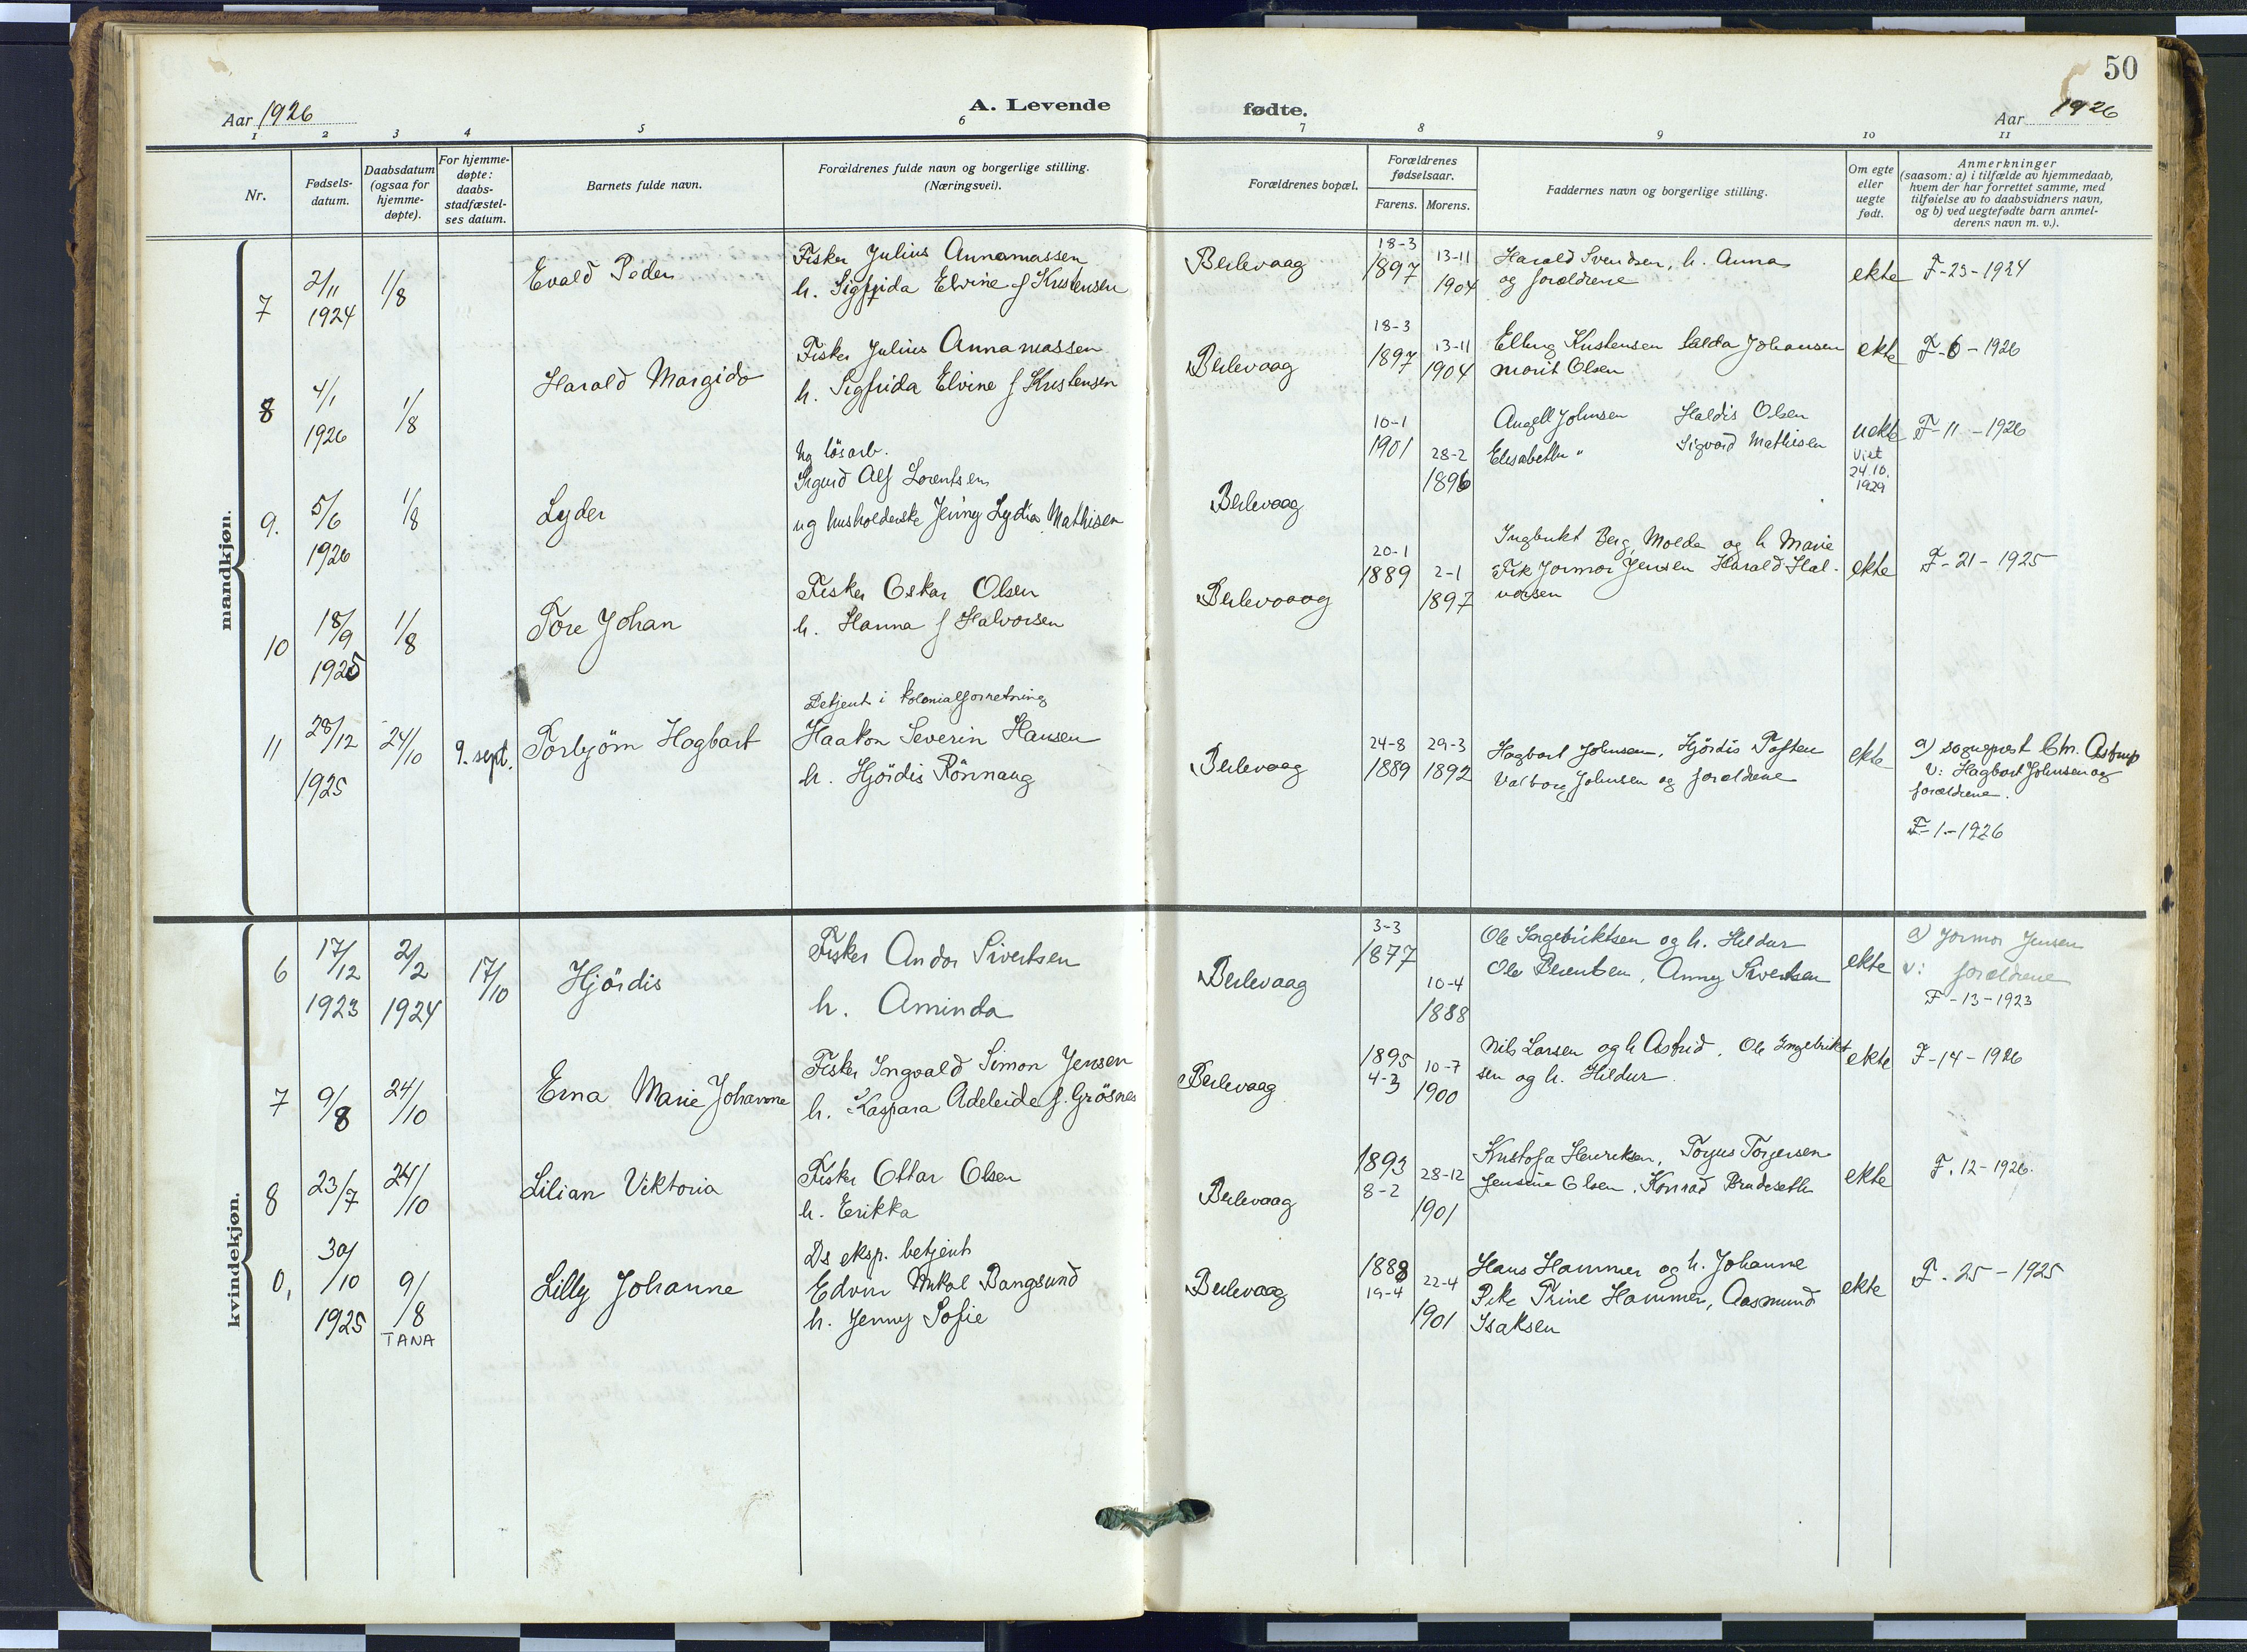 50
Aar 1926
A. Levende
fødte.
Aar 1926
1 2 3 4 5 6 7 8 9 10 11
Nr.
Fødsels-
datum.
Daabsdatum
(ogsaa for
hjemme-
døpte).
For hjemme-
døpte:
daabs-
stadfæstel-
ses datum.
Barnets fulde navn.
Forældrenes fulde navn og borgerlige stilling.
(Næringsvei).
Forældrenes bopæl.
Forældrenes
fødselsaar.
Farens. Morens.
Faddernes navn og borgerlige stilling.
Om egte
eller
uegte
født.
Anmerkninger
(saasom: a) i tilfælde av hjemmedaab,
hvem der har forrettet samme, med
tilføielse av to daabsvidners navn,
og b) ved uegtefødte barn anmel-
derens navn m. v.).
mandkjøn.
7
2/11
1924
1/8
Evald Peder
Fisker Julius Annamassen
h. Sigfrida Elvine f Kristensen
Berlevaag
18-3
1897
13-11
1904
Harald Svendsen, h. Anna
og forældrene
ekte
F-23-1924
8
4/1
1926
1/8
Harald Margido
Fisker Julius Annamassen
h. Sigfrida Elvine f Kristensen
Berlevaag
18-3
1897
13-11
1904
Elling Kristensen Salda Johansen
Marit Olsen
ekte
F-6-1926
9.
5/6
1926
1/8
Lyder
Ug lösarb.
Sigurd Alf Lorentsen
ug husholderske Jenny Lydia Mathisen
Berlevaag
10-1
1901
28-2
1896
Angell Johnsen Haldis Olsen
Elisabeth " Sigvard Mathisen
uekte
Viet
24.10.
1929
F-11-1926
10
18/9
1925
1/8
Tore Johan
Fisker Oskar Olsen
h. Hanna f Halvorsen
Berlevaag
20-1
1889
2-1
1897
Ingbrikt Berg, Molde og h Marie
Frk Jormor Jensen Harald Hal-
vorsen
ekte
F-21-1925
11
28/12
1925
24/10
9. sept.
Torbjörn Hagbart
Betjent i kolonialforretning
Haakon Severin Hansen
h. Hjördis Rönnaug
Berlevaag
24-8
1889
29-3
1892
Hagbart Johnsen, Hjördis Toften
Valborg Johnsen og forældrene
ekte
a) sogneprest Chr. Astrup
V: Hagbart Johnsen og
forældrene.
F-1-1926
kvindekjøn.
6
17/12
1923
2/2
1924
17/10
Hjördis
Fisker Andor Sivertsen
h. Aminda
Berlevaag
3-3
1877
10-4
1888
Ole Ingebriktsen og h. Hildur
Ole Berentsen, Anny Sivertsen
ekte
a) Jormor Jensen
v: forældrene
F-13-1923
7
9/8
24/10
Erna Marie Johanne
Fisker Ingvald Simon Jensen
h. Kaspara Adeleide f. Grösnes
Berlevaag
1895
4-3
10-7
1900
Nils Larsen og h Astrid. Ole Ingebrikt
sen og h. Hildur.
ekte
F-14-1926
8
23/7
24/10
Lilian Viktoria
Fisker Ottar Olsen
h. Erikka
Berlevaag
1893
8-2
28-12
1901
Kristofa Henriksen, Torgus Torgersen
Jensine Olsen. Konrad Bradeseth
ekte
F. 12-1926.
0,
30/10
1925
9/8
TANA
Lilly Johanne
Ds eksp. betjent
Edvin Mikal Bangsund
h. Jenny Sofie
Berlevaag
1888
19-4
22-4
1901
Hans Hammer og h. Johanne
Pike Trine Hammer, Aasmund
Isaksen
ekte
F. 25-1925